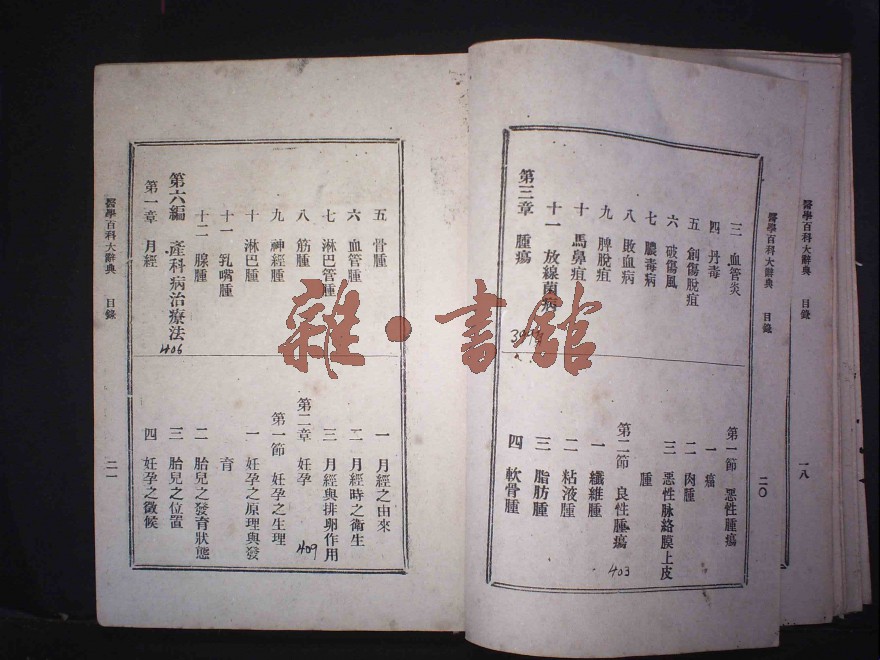 醫學百科大辭典 目錄
一八
醫學百科大辭典 目錄
二〇
三 血管炎
四 丹毒
五 創傷脫疽
六 破傷風
七 膿毒病
八 敗血病
九 脾脫疽
十 馬鼻疽
十一 放線菌病
第三章 腫瘍
第一節 惡性腫瘍
一 癌
二 肉腫
三 惡性脉絡膜上皮
腫
第二節 良性腫瘍
403
一 纖維腫
二 粘液腫
三 脂肪腫
四 軟骨腫
五 骨腫
六 血管腫
七 淋巴管腫
八 筋腫
九 神經腫
十 淋巴腫
十一 乳嘴腫
十二 腺腫
第六編 產科病治療法
406
第一章 月經
一 月經之由來
二 月經時之衛生
三 月經與排卵作用
第二章 妊孕
409
第一節 妊孕之生理
一 妊孕之原理與發
育
二 胎兒之發育狀態
三 胎兒之位置
四 妊孕之徵候
醫學百科大辭典 目錄
二一
雜·書館